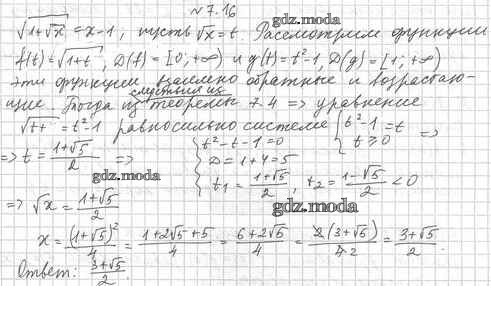 №7.16
gdz.moda
√(1+√x) = x-1, пусть √x = t. Рассмотрим функции
f(t) = √(1+t), D(f) = [0; +∞) и g(t) = t²-1, D(g) = [1; +∞)
Эти функции взаимно обратные и возрастаю-
щие. Тогда из следствия из теоремы 7.4 => уравнение
√(1+t) = t²-1 равносильно системе { t²-1 = t =>
t ≥ 0
=> t = (1+√5)/2 => { t²-t-1=0
D = 1+4 = 5
t₁ = (1+√5)/2, t₂ = (1-√5)/2 < 0
gdz.moda
=> √x = (1+√5)/2
gdz.moda
x = (1+√5)²/4 = (1+2√5+5)/4 = (6+2√5)/4 = 2(3+√5)/4 2 = (3+√5)/2.
Ответ: (3+√5)/2.
gdz.moda